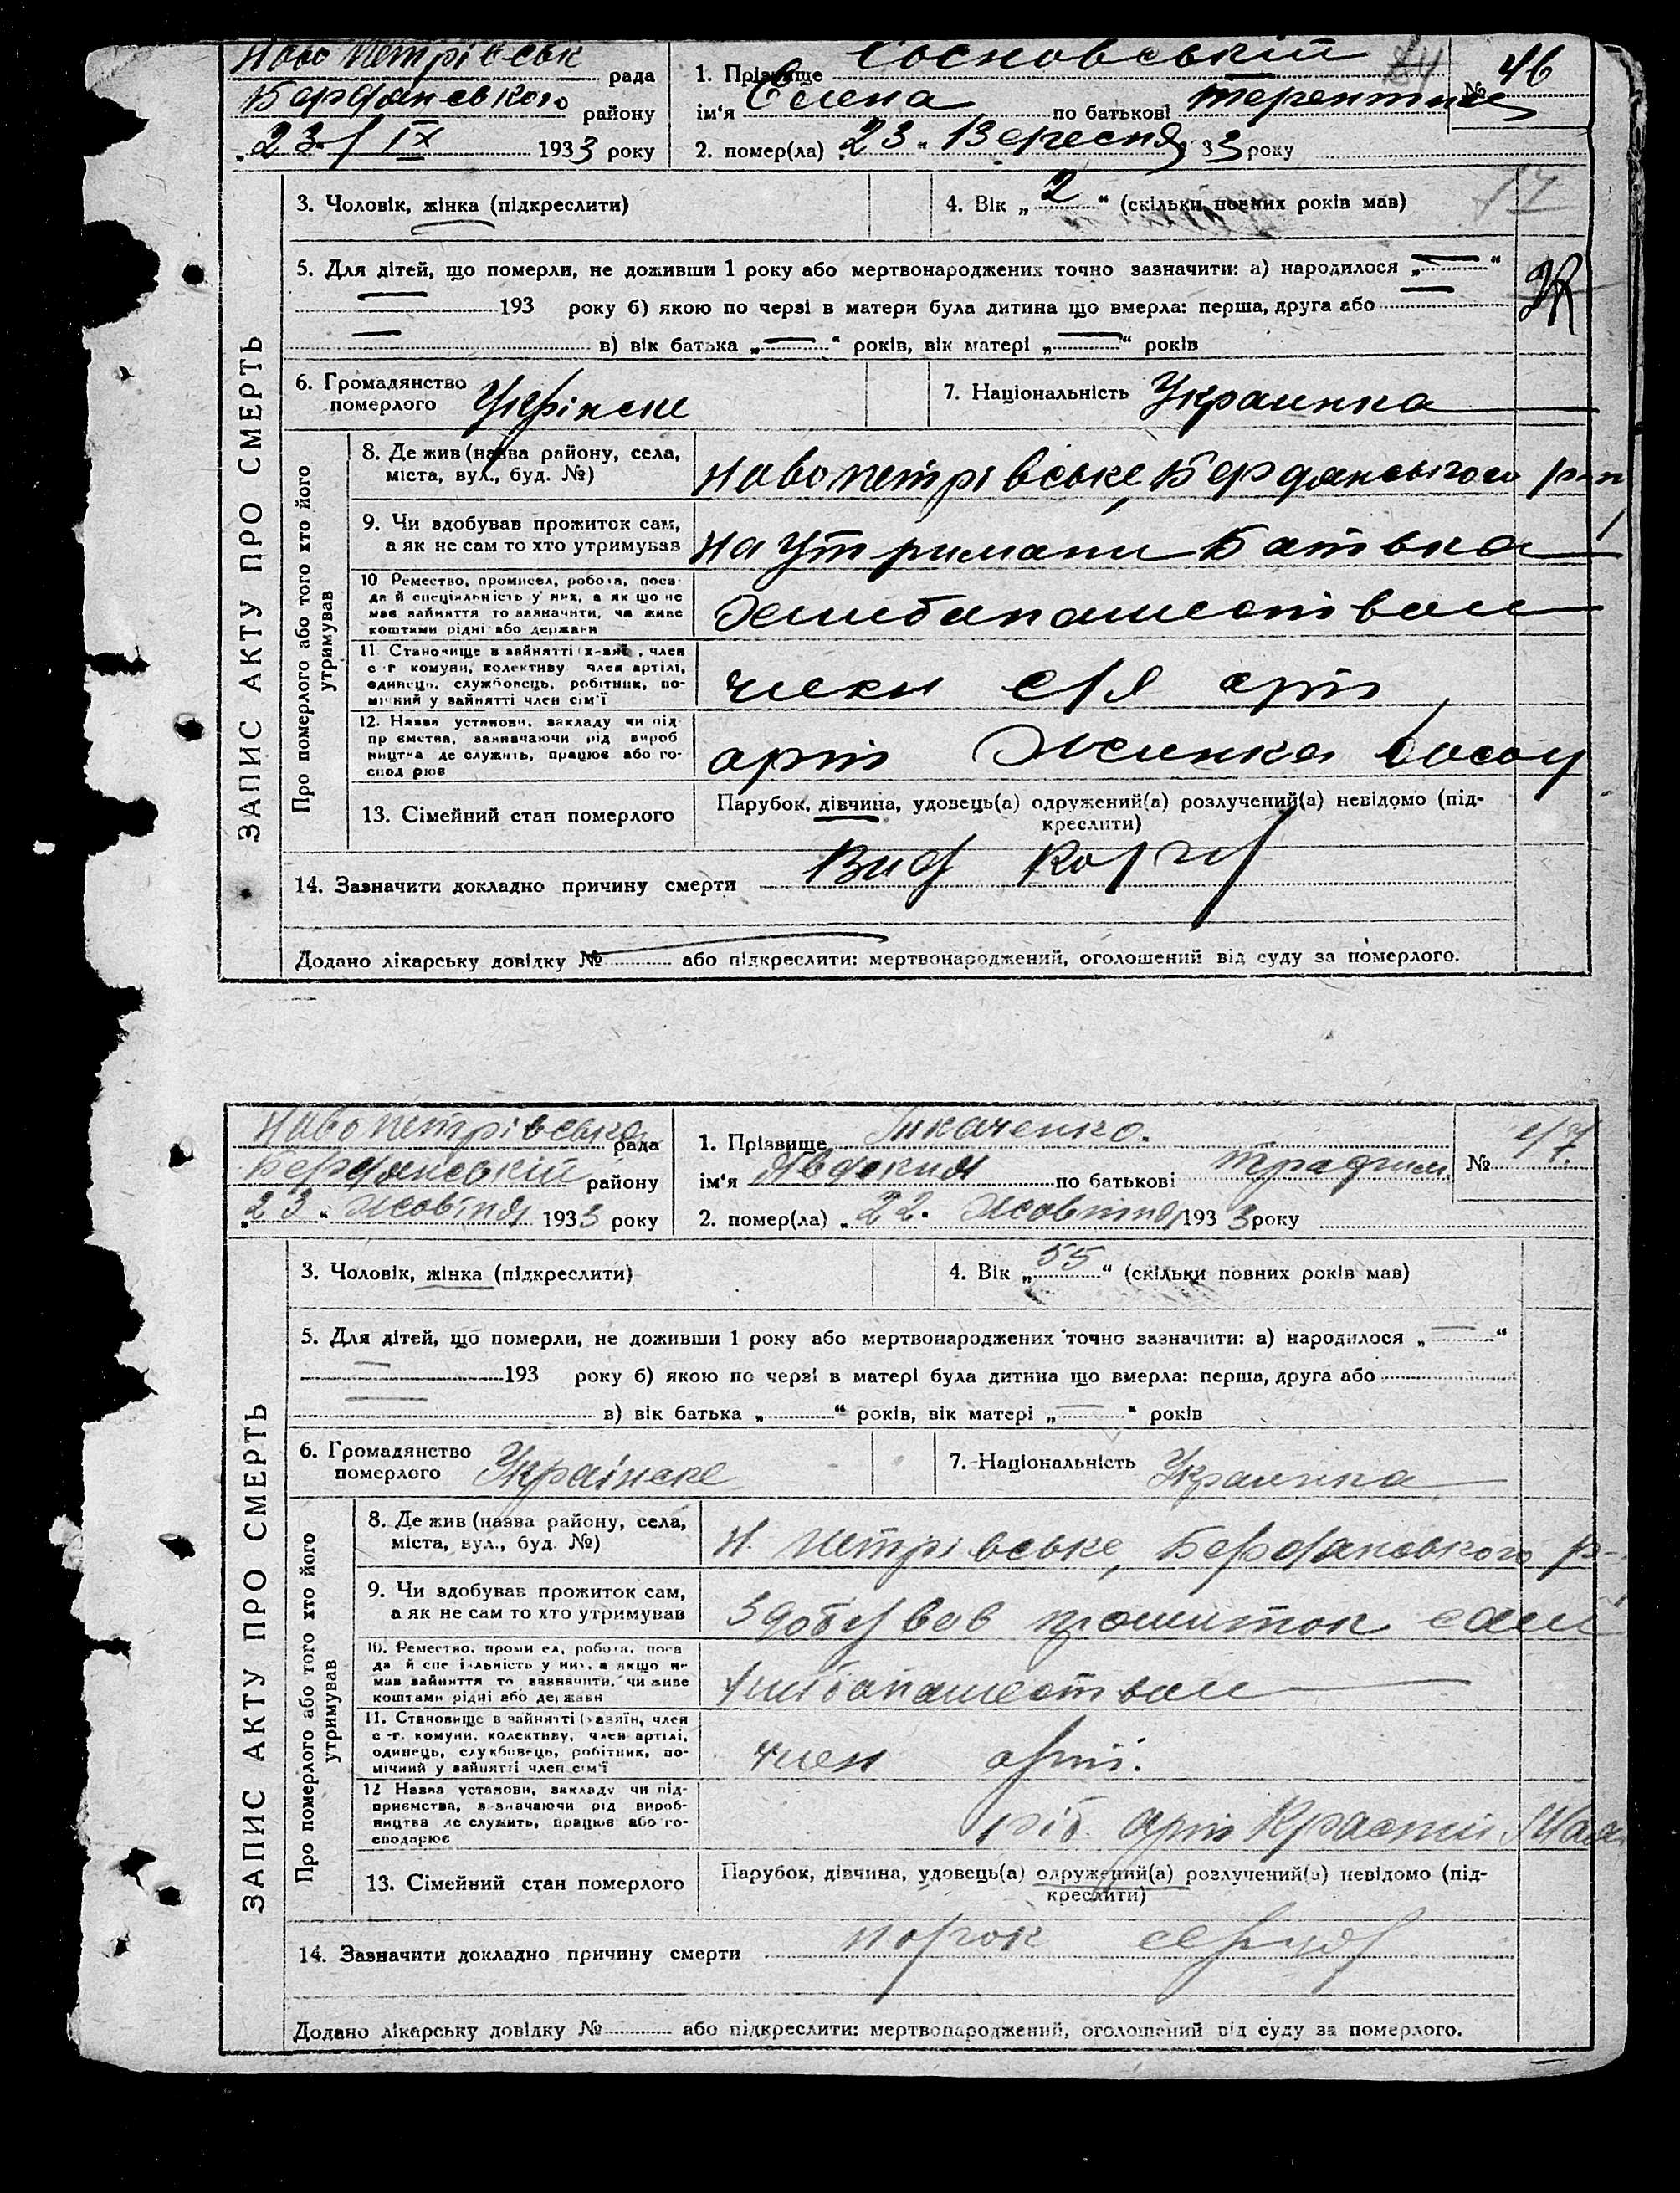 Ново Петрівськ рада
Бердянського району
„23 / IX 1933 року
1. Прізвище Сосновській
№ 46
ім'я Єлена по батькові Терентиев
2. помер(ла) „23 „ Вересня 33 року
ЗАПИС АКТУ ПРО СМЕРТЬ
3. Чоловік, жінка (підкреслити)
4. Вік „ 2 “ (скільки повних років мав)
5. Для дітей, що померли, не доживши 1 року або мертвонароджених точно зазначити: а) народилося „ — “
— 193 року б) якою по черзі в матери була дитина що вмерла: перша, друга або —
— в) вік батька „ — “ років, вік матері „ — “ років
6. Громадянство
померлого Укрінске
7. Національність Украинка
Про померлого або того хто його
утримував
8. Де жив (назва району, села,
міста, вул., буд. №)
Новопетрівське, Бердянського р-н
9. Чи здобував прожиток сам,
а як не сам то хто утримував
на утримани Батька
10 Ремество, промисел, робота, поса-
да й специіяльність у них, а як що не
має зайняття то зазначити, чи живе
коштами рідні або держави
11 Становище в зайнятті (х-зяї , член
с-г комуни, колективу член артілі,
одинець, службовець, робітник, по-
мічний у зайнятті член сім'ї
член с/г арт
12. Назва установи, закладу чи під
пр ємства, зазначаючи рід вироб
ництва де служить, працює або го-
спод рює
арт
13. Сімейний стан померлого
Парубок, дівчина, удовець(а) одружений(а) розлучений(а) невідомо (під-
креслити)
14. Зазначити докладно причину смерти Вид
Додано лікарську довідку № або підкреслити: мертвонароджений, оголошений від суду за померлого.
Новопетрівська рада
Бердянській району
„23 “ Жовтня 1933 року
1. Прізвище Ткаченко.
№ 47.
ім'я Явдокия по батькові Трафим
2. помер(ла) „ 22. Жовтня 1933 року
ЗАПИС АКТУ ПРО СМЕРТЬ
3. Чоловік, жінка (підкреслити)
4. Вік „ 55 “ (скільки повних років мав)
5. Для дітей, що померли, не доживши 1 року або мертвонароджених точно зазначити: а) народилося „ — “
— 193 року б) якою по черзі в матері була дитина що вмерла: перша, друга або
— в) вік батька „ “ років, вік матері „ — “ років
6. Громадянство
померлого Українске
7. Національність Украинка
Про померлого або того хто його
утримував
8. Де жив (назва району, села,
міста, вул., буд. №)
Н. Петрівське, Бердянського р-
9. Чи здобував прожиток сам,
а як не сам то хто утримував
Здобував прошиток сам
10. Ремество, проми ел, робота, поса
да й спе і-льність у них, а якщо не
мав зайняття то зазначити, чи живе
коштами рідні або держави
11. Становище в зайнятті (хазяїн, член
с -г. комуни, колективу, член артілі,
одинець, службовець, робітник, по-
мічний у зайнятті член сім'ї
член арті.
12 Назва установи, закладу чи під-
приємства, зазначаючи рід вироб-
ництва де служить, працює або го-
сподарює
ріб. арт Красний Маяк
13. Сімейний стан померлого
Парубок, дівчина, удовець(а) одружений(а) розлучений(а) невідомо (під-
креслити)
14. Зазначити докладно причину смерти порок сердця
Додано лікарську довідку № або підкреслити: мертвонароджений, оголошений від суду за померлого.